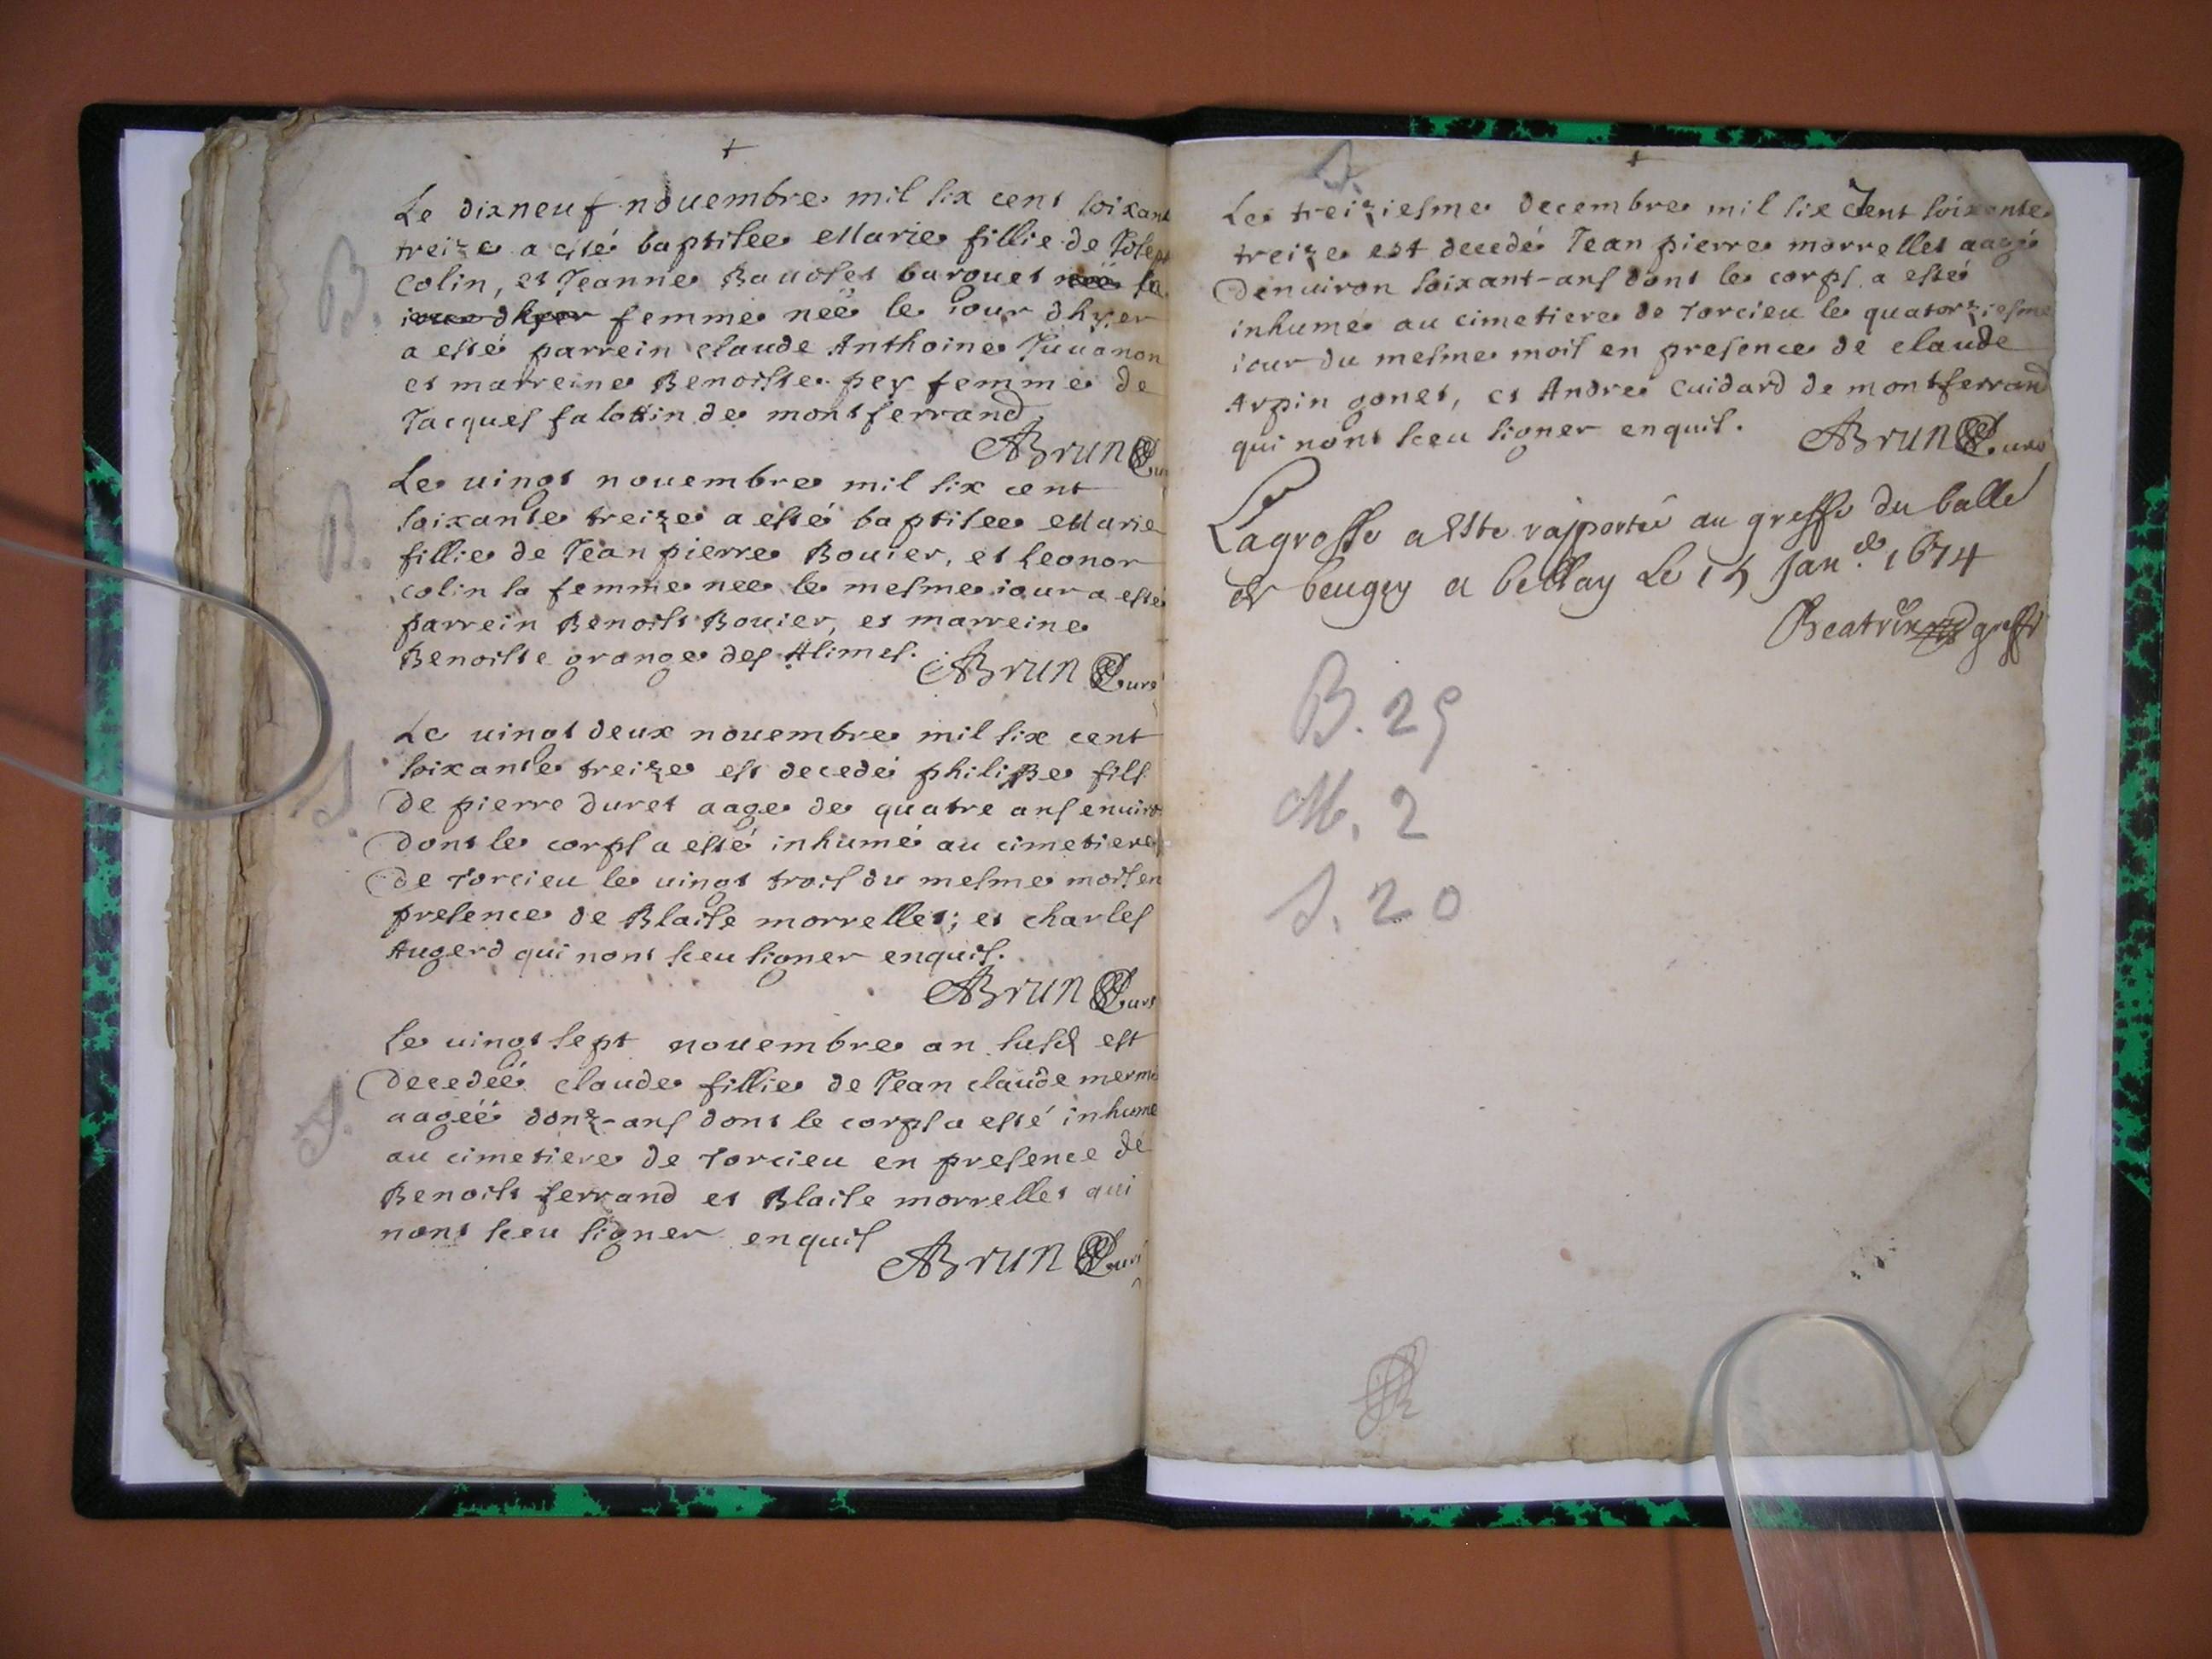 +
Le dixneuf nouembre mil six cent soixant
B.
treize a esté baptisee Marie fillie de Josept
Colin, et Jeanne Bauoset barquet née sa
femme neé le iour dhyer
a esté parrein claude Anthoine Juuanon
et marreine Benoiste pey femme de
Jacques falottin de montferrand
ABrun Cur
Le uingt nouembre mil six cent
B.
soixante treize a esté baptisee Marie
fillie de Jean pierre Bouier, et Leonor
colin sa femme nee le mesme iour a esté
parrein Benoist Bouier, et marreine
Benoiste grange des Alimes.
ABrun Curé
Le uingt deux nouembre mil six cent
S.
soixante treize est decedé philippe fils
de pierre duret aage de quatre ans enuiro
dont le corps a esté inhumé au cimetiere
de Torcieu le uingt trois du mesme mois en
presence de Blaise morrellet; et charles
Augerd qui nont sceu signer enquis.
ABrun Curé
Le uingt sept nouembre an susd est
S.
decedeé claude fillie de Jean claude merm
aageé donz-ans dont le corps a esté inhume
au cimetiere de Torcieu en presence de
Benoist ferrand et Blaise morrellet qui
nont sceu signer enquis
ABrun Curé
S.
+
Le treiziesme decembre mil six Cent soixante
treize est decedé Jean pierre morrellet aagé
denuiron soixant-ans dont le corps a esté
inhumé au cimetiere de Torcieu le quatorziesme
iour du mesme mois en presence de claude
Arpin gonet, et Andre Cuidard de montferrand
qui nont sceu signer enquis.
ABrun Curé
Lagrosse a Esté rapportée au greffe du balle
de beugey a bellay Le 15 Jan.er 1674
Beatrix greffr
B. 25
M. 2
S. 20